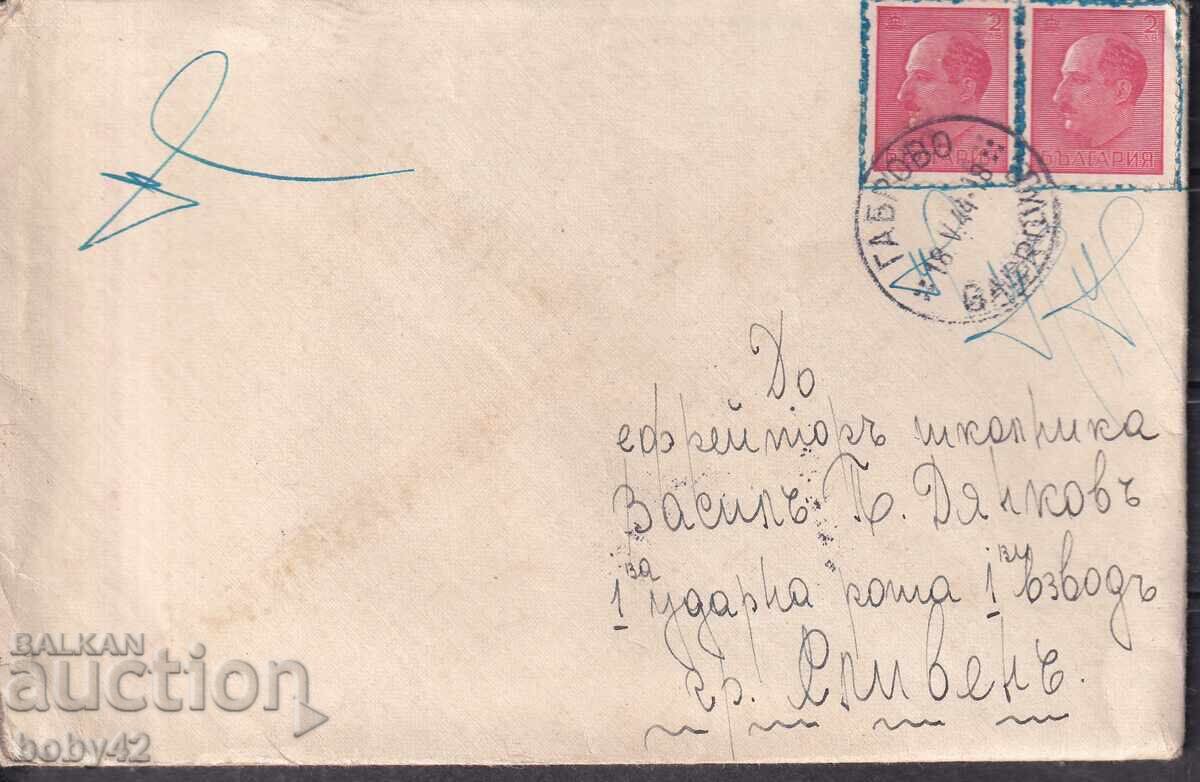 2 лв
2 лв
БЪЛГАРИЯ
БЪЛГАРИЯ
ГАБРОВО
18 V 44-18
До
ефрейторъ школника
Василъ П. Дянковъ
1ва ударна рота 1ви взводъ
гр. Сливенъ.
BALKAN
auction
boby42